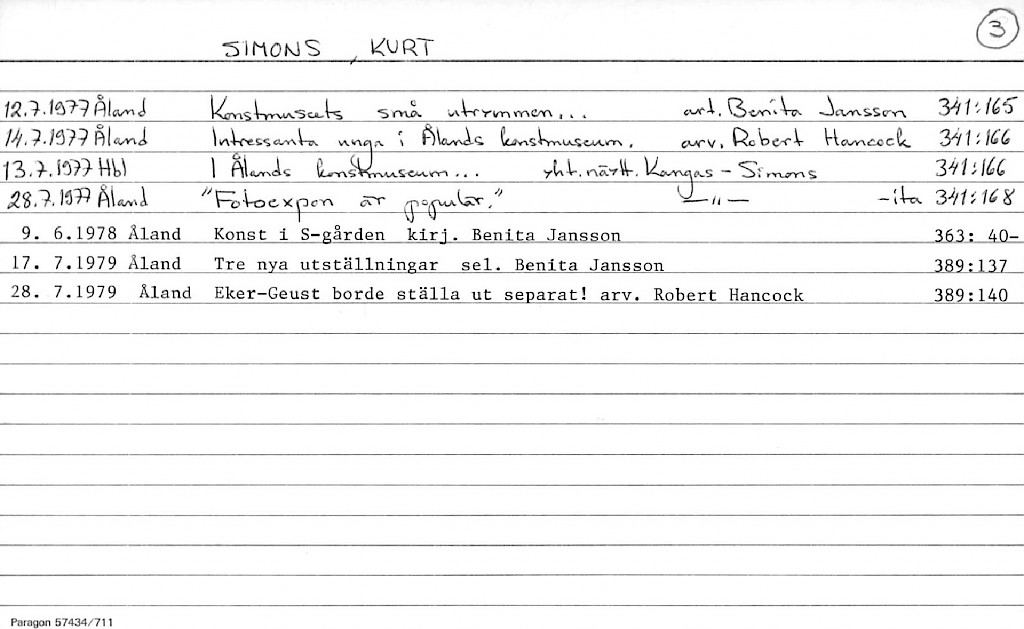 3
SIMONS, KURT
12.7.1977 Åland Konstmuseets små utrymmen... art. Benita Jansson 341:165
14.7.1977 Åland Intressanta unga i Ålands konstmuseum. arv. Robert Hancock 341:166
13.7.1977 Hbl I Ålands konstmuseum... yht.näytt. Kangas - Simons 341:166
28.7.1977 Åland "Fotoexpon är populär." —"— -ita 341:168
9. 6.1978 Åland Konst i S-gården kirj. Benita Jansson 363: 40-
17. 7.1979 Åland Tre nya utställningar sel. Benita Jansson 389:137
28. 7.1979 Åland Eker-Geust borde ställa ut separat! arv. Robert Hancock 389:140
Paragon 57434/711